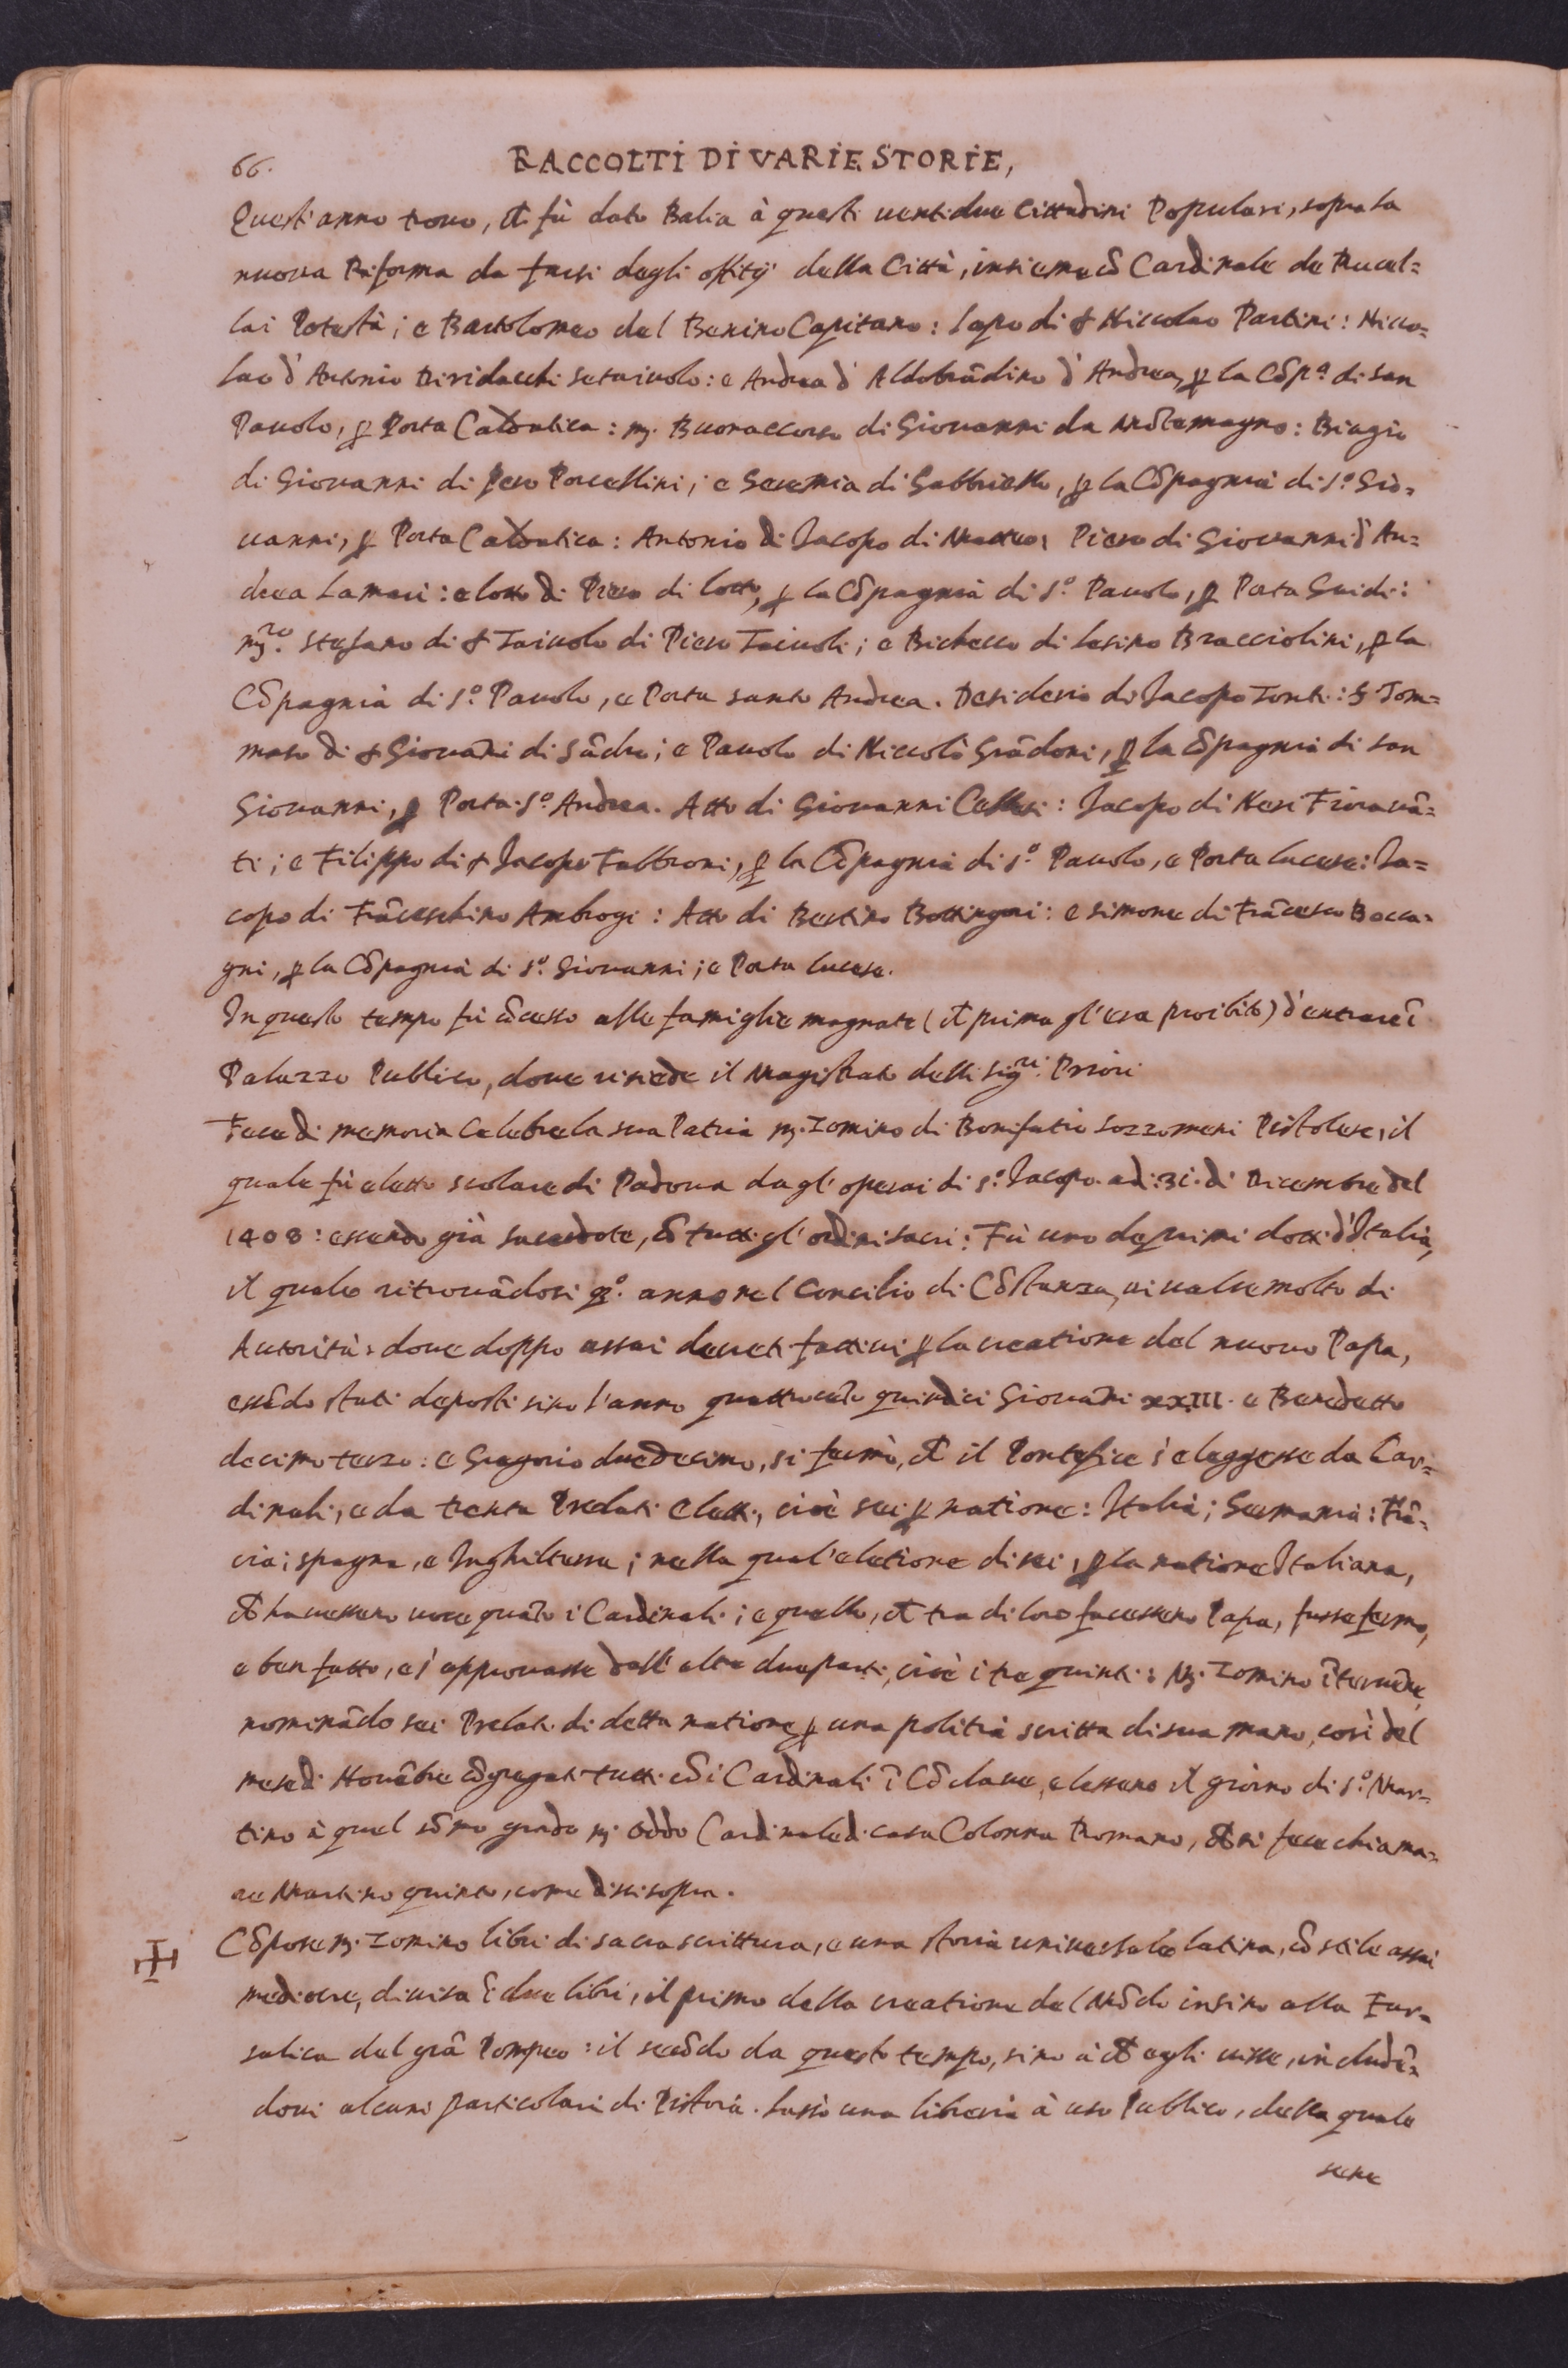 66. RACCOLTI DI VARIE STORIE,
Quest'anno trouo, ch fù dato Balia à questi uentidue Cittadini Populari, sopra la
nuoua Riforma da farsi degli offitij della Città, insieme cō Cardinale de Rucel=
lai Potestà; e Bartolomeo del Benino Capitano: Lapo di § Niccolao Partini: Nicco=
lao d'Antonio Diridacchi setaiuolo: e Andrea d'Aldobrādino d'Andrea, ꝑ la Cōpª. di san
Pauolo, ꝑ Porta Caldatica: mͬ. Buonaccorso di Giouanni da Mōtemagno: Biagio
di Giouanni di Pero Porcellini; e Geremia di Gabbriello, ꝑ la Cōpagnia di sº. Gio=
uanni, ꝑ Porta Caldatica: Antonio di Jacopo di Matteo, Piero di Giouanni d'An=
drea Lamari: e Lotto di Piero di Lotto, ꝑ la Cōpagnia di sº. Pauolo, ꝑ Porta Guidi:
mͬº. Stefano di § Taiuolo di Piero Taiuoli; e Bichecco di Lesino Bracciolini, ꝑ la
Cōpagnia di sº. Pauolo, e Porta santo Andrea. Desiderio di Jacopo Tonti: § Tom=
maso di § Giouāni di Sādro; e Pauolo di Niccolò Grādoni, ꝑ la Cōpagnia di san
Giouanni, ꝑ Porta sº. Andrea. Atto di Giouanni Cellesi: Jacopo di Neri Fiorauā=
ti; e Filippo di § Jacopo Fabbroni, ꝑ la Cōpagnia di sº. Pauolo, e Porta Lucese: Ja=
copo di Frāceschino Ambrogi: Atto di Bertino Bottingori: e Simone di Frācesco Bocca=
gni, ꝑ la Cōpagnia di sº. Giouanni; e Porta Lucese.
In questo tempo fù cōcesso alle famiglie magnate (ch prima gl'era proibito) d'entrare ī
Palazzo Publico, doue risiede il Magistrato delli sigʳⁱ. Priori
Fece di memoria Celebre la sua Patria mͬ. Zomino di Bonifatio Sozzomeni Pistolese, il
quale fù eletto scolare di Padoua dagl'operai di sº. Jacopo adi: 31: di Dicembre del
1408: essendo già sacerdote, cō tutti gl'ordini sacri: Fù uno de primi dotti d'Italia,
il quale ritrouādosi qº. anno nel Concilio di Cōstanza, ui ualse molto di
Autorità: doue doppo assai decreti fattiui ꝑ la creatione del nuouo Papa,
essēdo stati deposti sino l'anno quattrocēto quindici Giouāni XXIII. e Benedetto
decimo terzo: e Gregorio duedecimo, si fermò, ch il Pontefice s'eleggesse da Car=
dinali, e da trenta Prelati eletti, cioè sei ꝑ natione: Italia; Germania: Frā=
cia; Spagna, e Inghilterra; nella qual'eletione di sei, ꝑ la natione Italiana,
ch hauesseno uoce quāto i Cardinali; e quello, ch tra di loro facesseno Papa, fusse fermo,
e ben fatto, e s'approuasse dall'altre due parti, cioè i tre quinti: Mͬ. Zomino īteruēne,
nominādo sei Prelati di detta natione, ꝑ una politia scritta di sua mano, così del
mese di Nouēbre cōgregati tutti cō i Cardinali ī Cōclaue, elesseno il giorno di sº. Mar=
tino à quel sōmo grado mͬ. Oddo Cardinale di casa Colonna Romano, ch si fece chiama=
re Martino quinto, come dissi sopra.
Cōpose mͬ. Zomino libri di sacra scrittura, e una storia uniuersale latina, cō stile assai
mediocre, diuisa ī due libri, il primo della creatione del Mōdo insino alla Far=
salica del grā Pompeo: il secōdo da questo tempo, sino à ch egli uisse, includē=
doui alcuni particolari di Pistoia. Lassò una libreria à uso Publico, della quale
sene